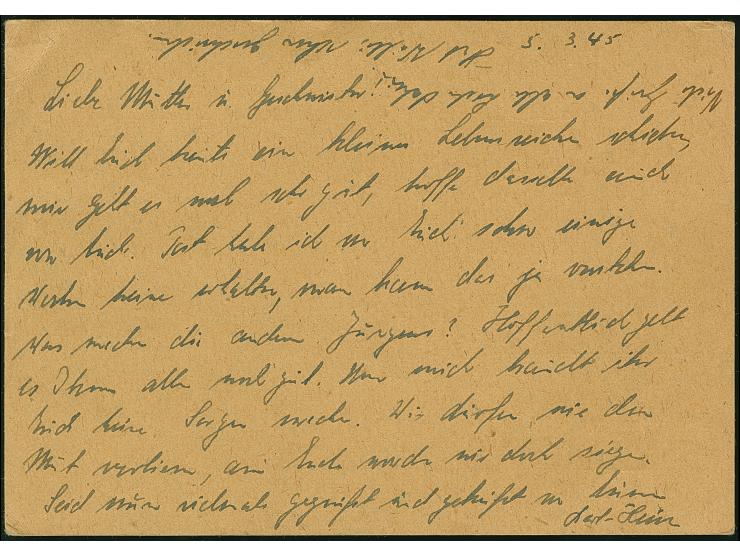 5. 3. 45
Liebe Mutter u. Geschwister!
Will Euch heute ein kleines Lebenszeichen schicken,
mir geht es noch sehr gut, hoffe dasselbe auch
von Euch. Post habe ich von Euch schon einige
Wochen keine erhalten, man kann das ja verstehen.
Was machen die andern Jungens? Hoffentlich geht
es Ihnen allen noch gut. Um mich braucht ihr
Euch keine Sorgen machen. Wir dürfen nie den
Mut verlieren, am Ende werden wir doch siegen.
Seid nun vielmals gegrüßt und geküßt von Eurem
Karl-Heinz